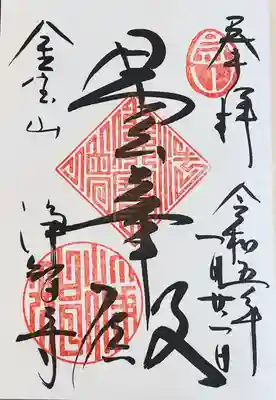 奉拝
令和五年
一月廿一日
曇華殿
金宝山
浄智寺